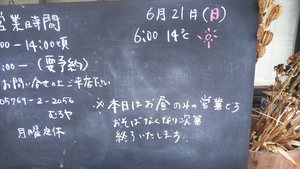 営業時間
00-14:00頃
:00-(要予約)
お問い合せの上ご来店下さい
05769-2-2056
むろや
月曜定休
6月21日(日)
6:00 14℃
※本日はお昼のみの営業とし
おそばなくなり次第
終了いたします